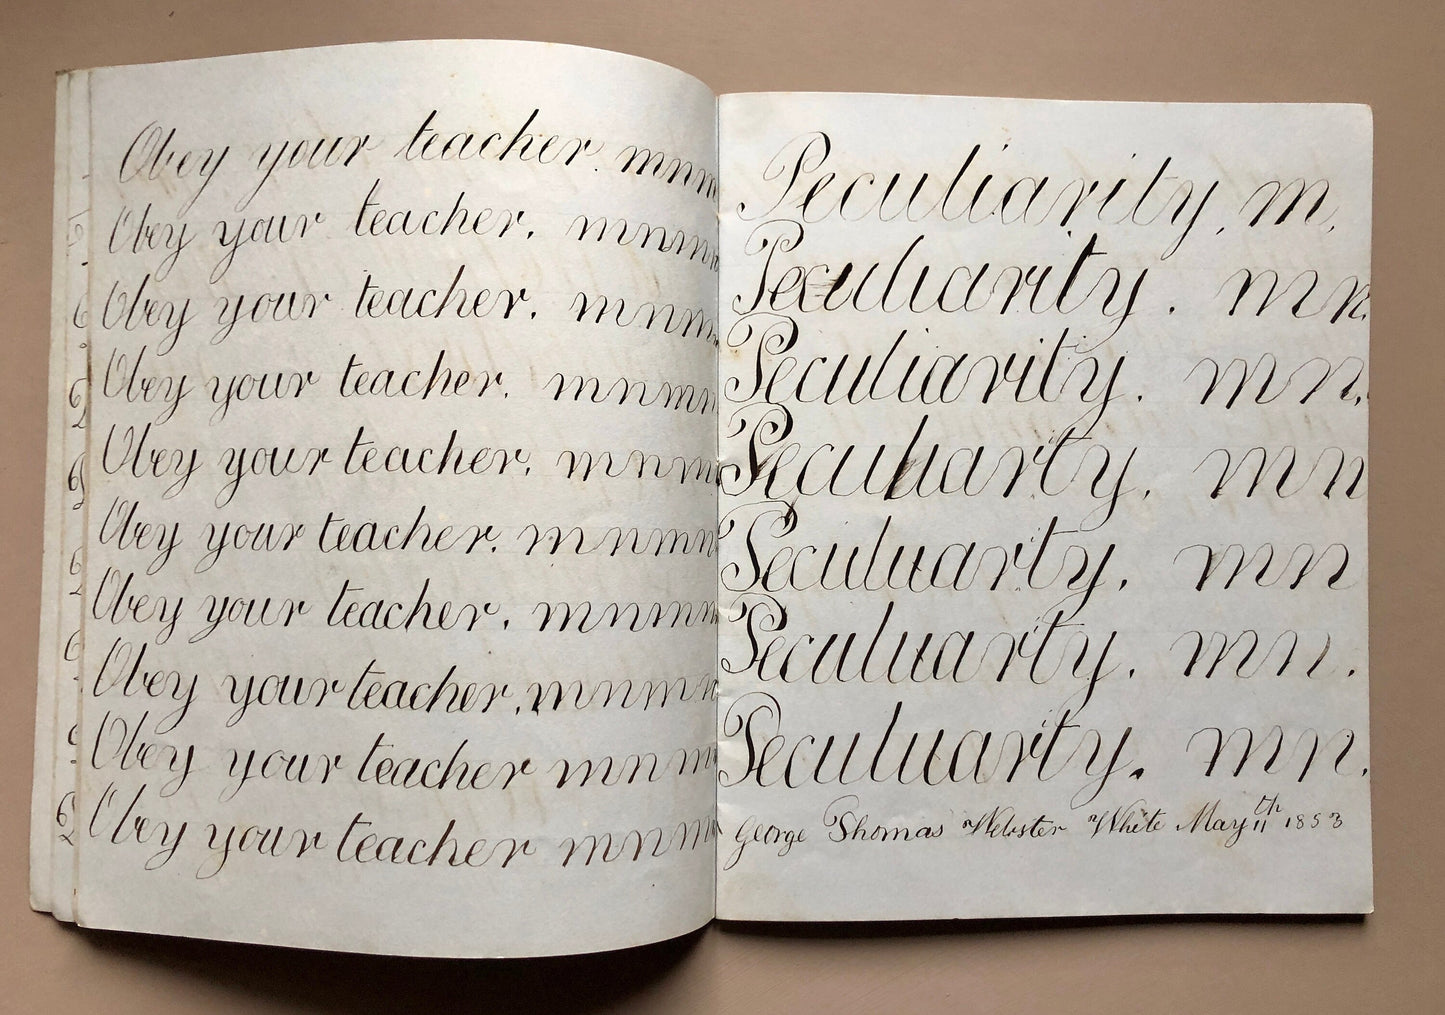 Obey your teacher. mnn
Obey your teacher. mnmn
Obey your teacher. mnnm
Obey your teacher. mnmn
Obey your teacher. mnnm
Obey your teacher. mnmn
Obey your teacher. mnmn
Obey your teacher. mnmn
Obey your teacher mnm
Obey your teacher mnm
Peculiarity. m.
Peculiarity. mn.
Peculiarity. mn.
Peculiarity. mn
Peculuarity. mn
Peculuarity. mn.
Peculuarity. mn.
George Thomas Webster White May 11th 1853